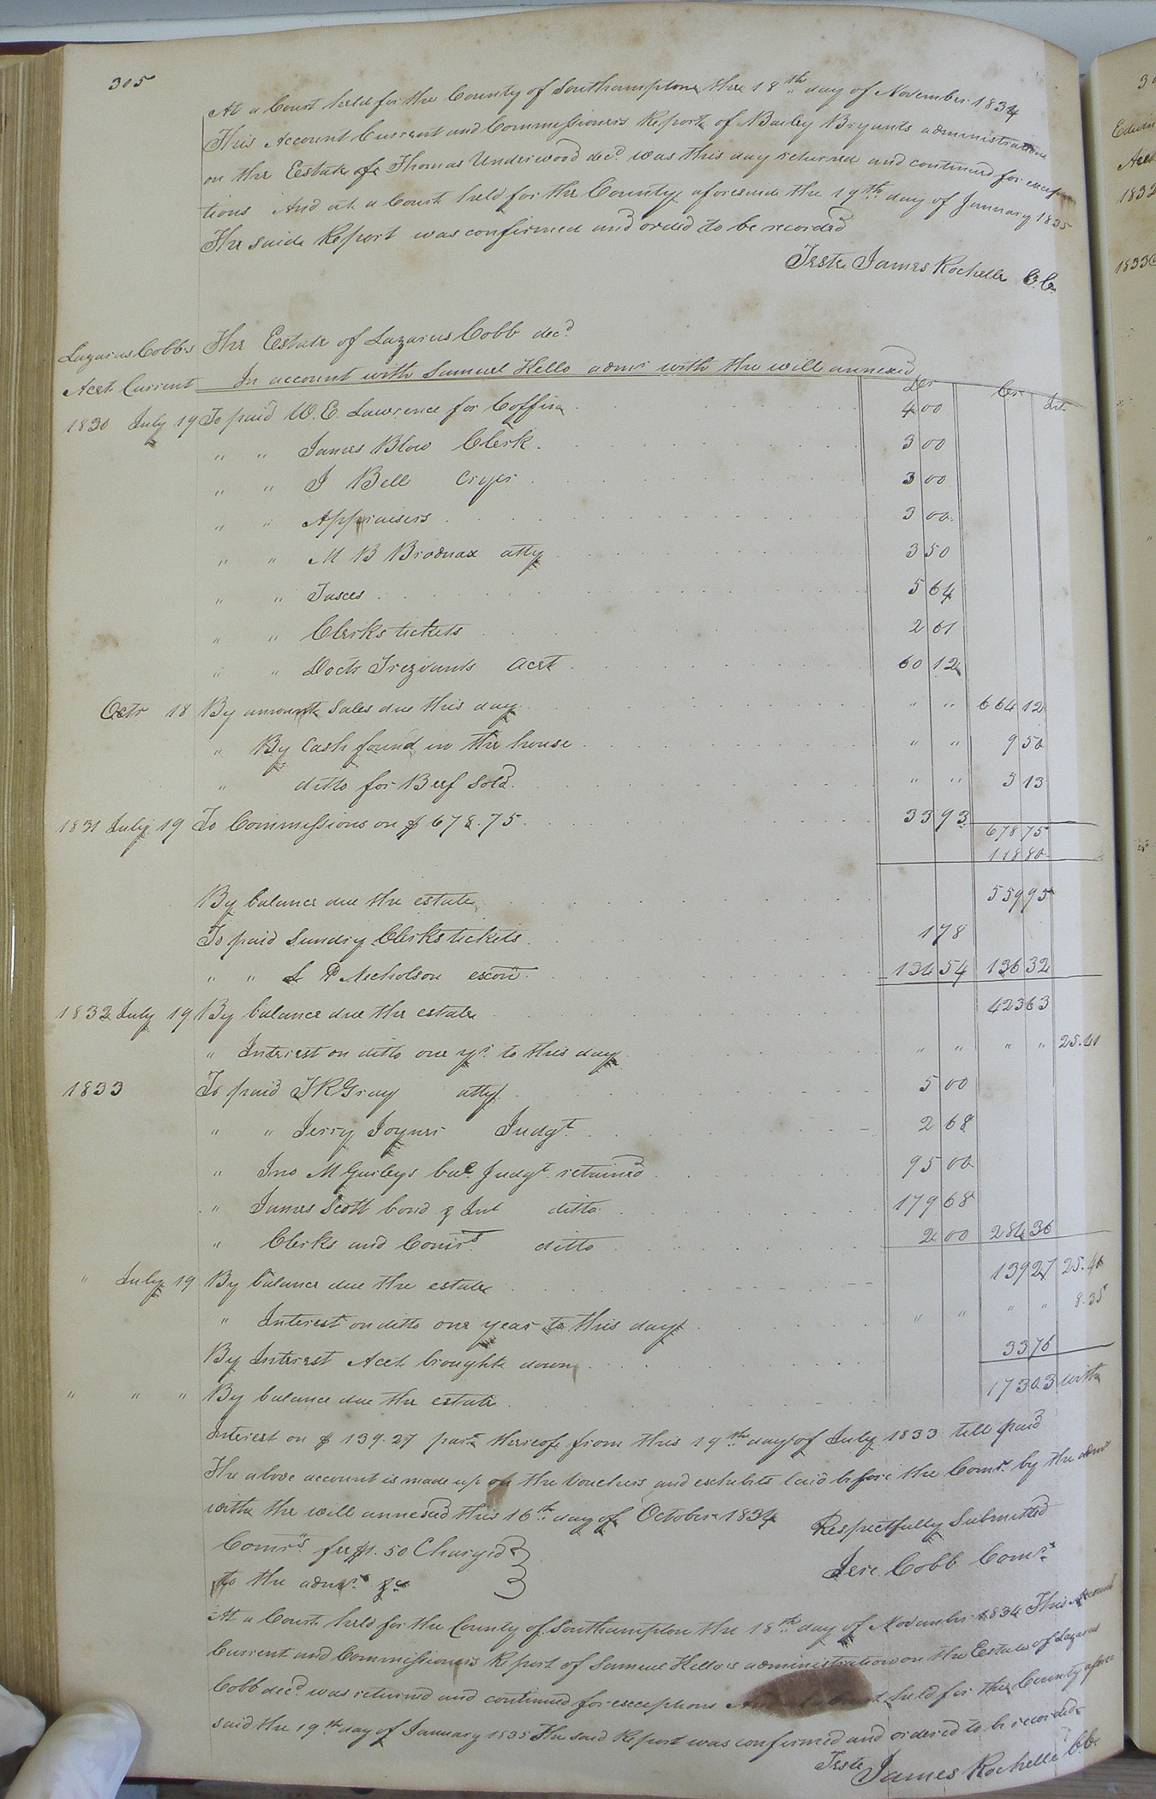 305
At a Court held for the County of Southampton the 18th day of November 1834
This Account Current and Commissioners Report of Bailey Bryants administration
on the Estate of Thomas Underwood decd was this day returned and continued for excep
tions And at a Court held for the County aforesaid the 19th day of January 1835
The said Report was confirmed and orded to be recorded
Teste James Rochelle C.C.
Lazarus Cobbs The Estate of Lazarus Cobb decd
Acct Current In account with Samuel Kello admr with the will annexed
Dr Cr Int
1830 July 19 To paid W. E. Lawrence for Coffin 4 00
" " James Blow Clerk 3 00
" " J Bell Cryer 3 00
" " Appraisers 3 00
" " M B Brodnax atty 3 50
" " Taxes 5 64
" " Clerks tickets 2 61
" " Doctr Trezvants acct 60 12
Octr 18 By amount Sales due this day " " 664 12
" By Cash found in the house " " 9 50
" ditto for Beef Sold " " 5 13
1831 July 19 To Commissions on $678.75 33 93
678 75
118 80
By balance due the estate 559 95
To paid Sundry Clerks tickets 1 78
" " L P Nicholson exor 134 54 136 32
1832 July 19 By balance due the estate 423 63
" Interest on ditto one yr to this day " " " " 25.41
1833 To paid T R Gray atty 5 00
" " Jerry Joyner Judgt 2 68
" Jno M Gurleys bal Judgt retained 95 00
" James Scott bond & Int ditto 179 68
" Clerks and Comrs ditto 2 00 284 36
" July 19 By balance due the estate 139 27 25.41
" Interest on ditto one year to this day " " " " 8.35
By Interest Acct brought down 33 76
" " " By balance due the estate 173 03 with
Interest on $139.27 part thereof from this 19th day of July 1833 till paid
The above account is made up on the Vouchers and exhibits laid before the Comr. by the admr
with the will annexed this 16th day of October 1834
Respectfully Submitted
Comrs fee $1.50 Charged
to the admr &c
Jere. Cobb Comr
At a Court held for the County of Southampton the 18th day of November 1834 This Account
Current and Commissioners Report of Samuel Kello's administration on the Estate of Lazarus
Cobb decd was returned and continued for exceptions And held for the County afore
said the 19th day of January 1835 The said Report was confirmed and ordered to be recorded
Teste James Rochelle C.C.